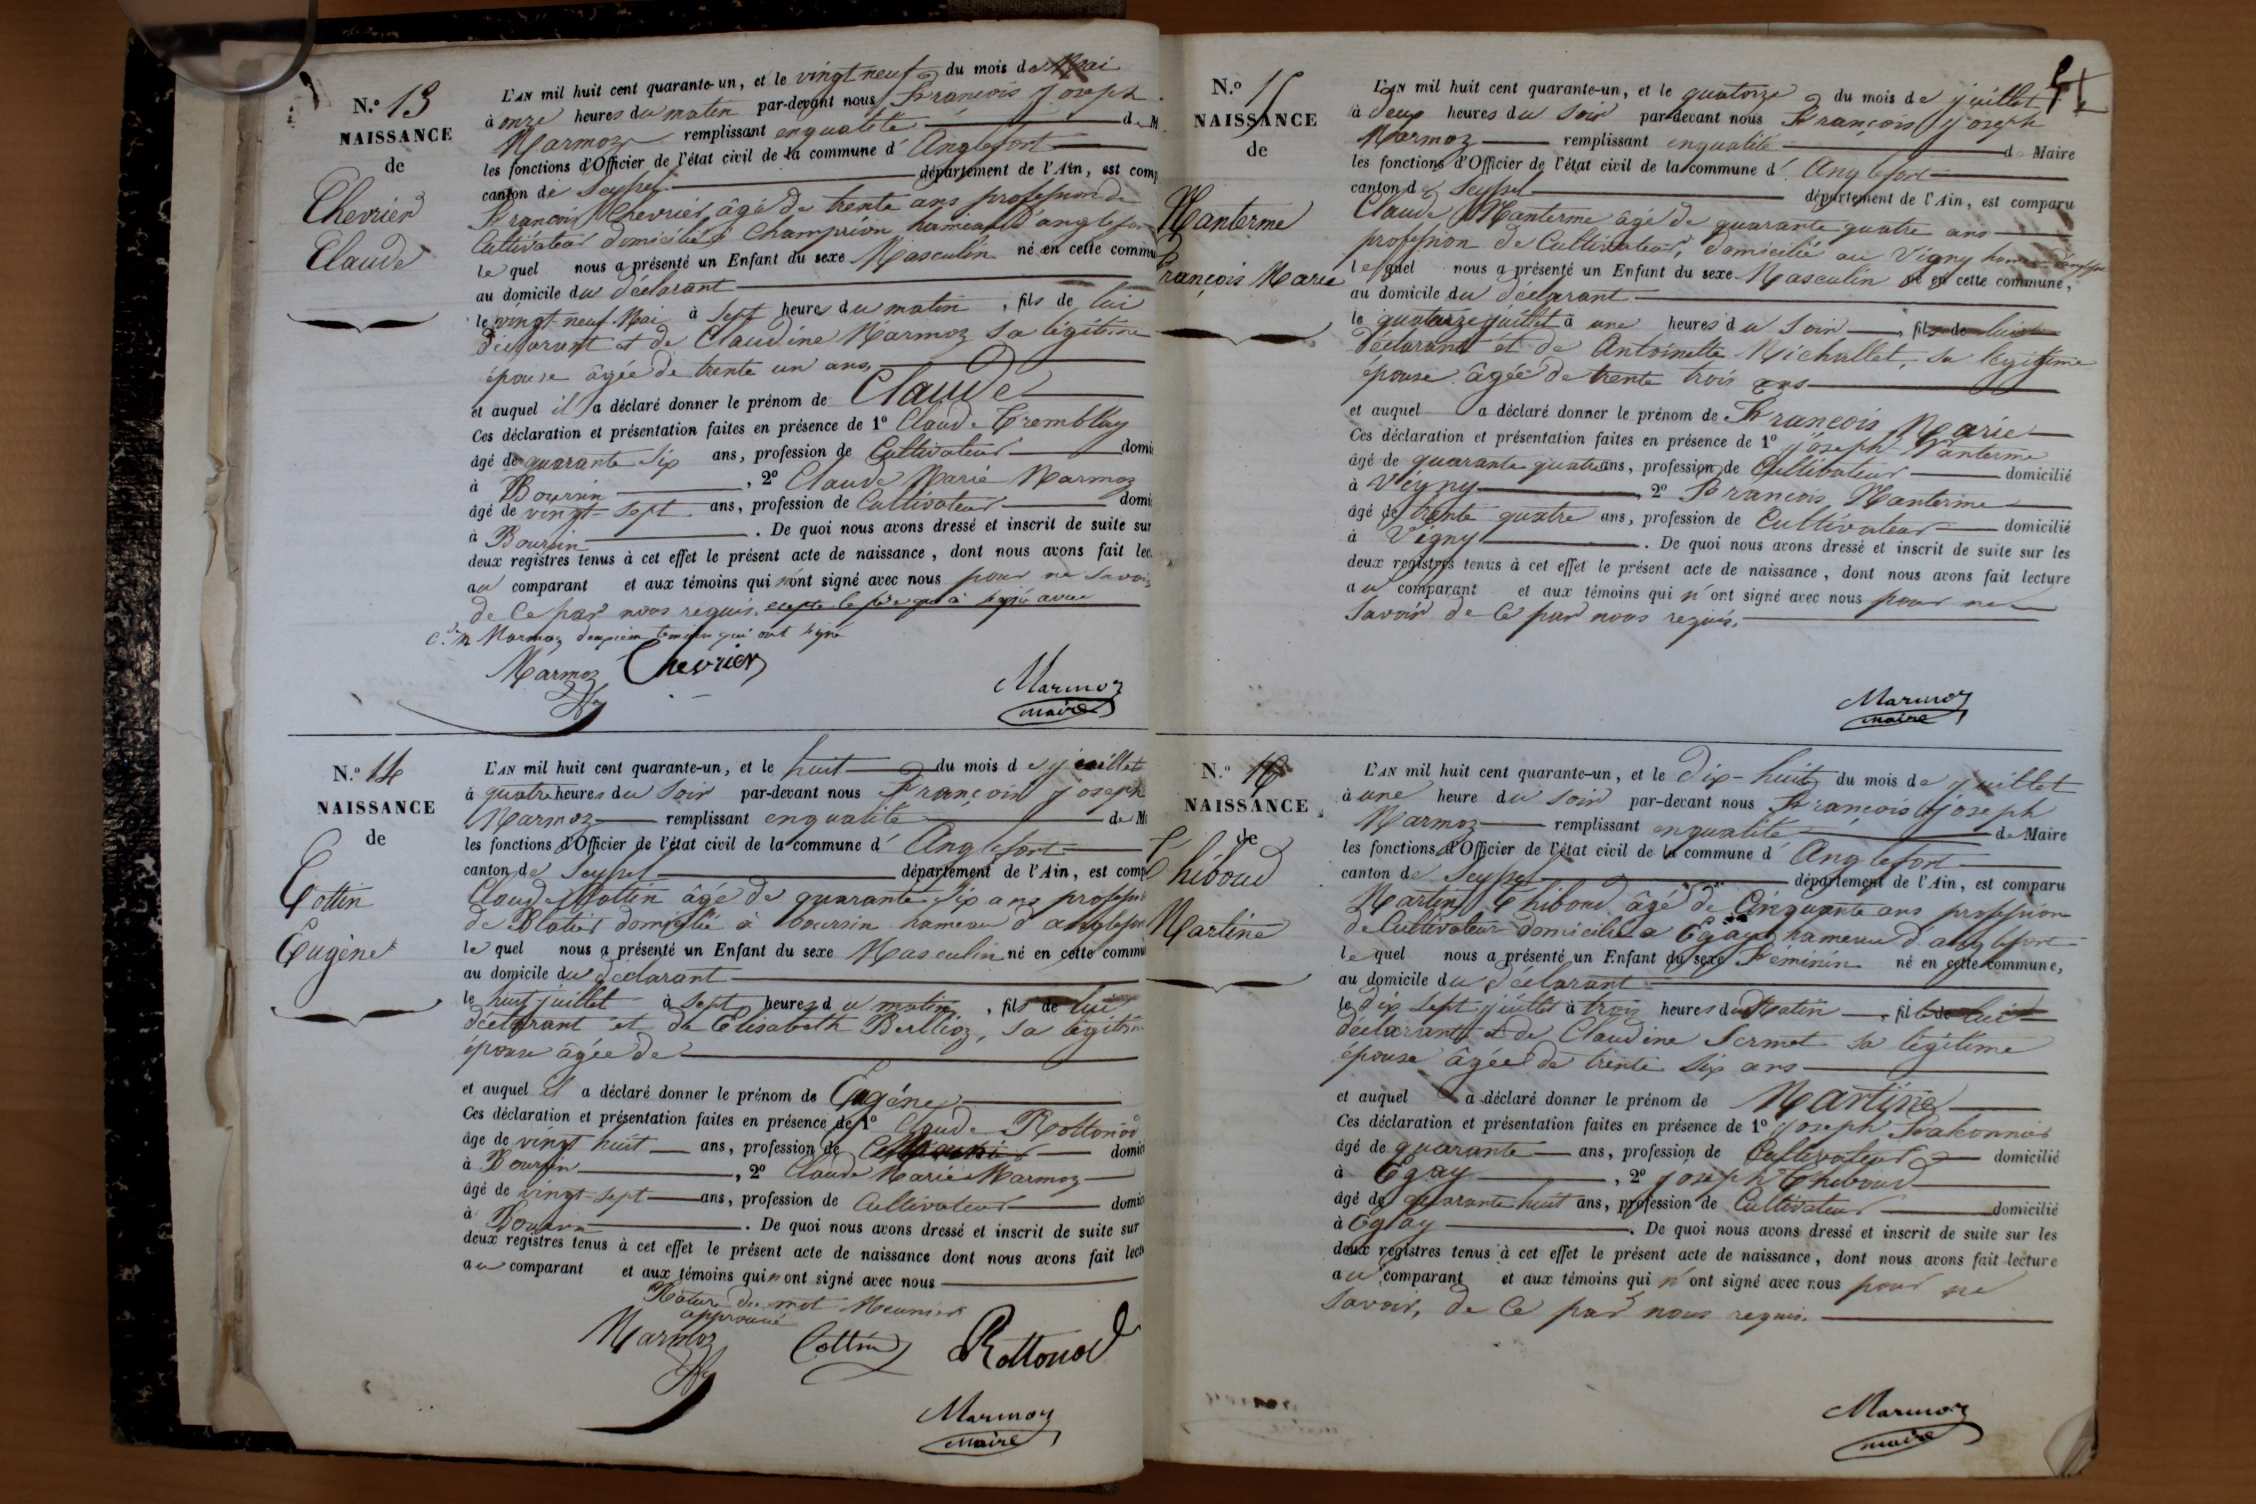 N.º 13
NAISSANCE
de
Chevrier
Claude
L'AN mil huit cent quarante-un, et le vingt neuf du mois de Mai
à onze heures du matin par-devant nous François Joseph
Marmoz remplissant en qualité de M
les fonctions d'Officier de l'état civil de la commune d' Anglefort
canton de Seyssel département de l'Ain, est comp
François Chevrier âgé de trente ans profession de
Cultivateur domicilié à Champrion hameau d'anglefor
le quel nous a présenté un Enfant du sexe Masculin né en cette commu
au domicile du déclarant
le vingt neuf Mai à sept heures du matin, fils de lui
déclarant et de Claudine Marmoz sa légitime
épouse âgée de trente un ans,
et auquel il a déclaré donner le prénom de Claude
Ces déclaration et présentation faites en présence de 1º Claude Tremblay
âgé de quarante six ans, profession de Cultivateur domi
à Boursin, 2º Claude Marie Marmoz
âgé de vingt-sept ans, profession de Cultivateur domi
à Boursin. De quoi nous avons dressé et inscrit de suite sur
deux registres tenus à cet effet le présent acte de naissance, dont nous avons fait lec
au comparant et aux témoins qui n'ont signé avec nous pour ne savoir
de ce par nous requis. excepté le père qui à signé avec
C. M Marmoz deuxième temoin qui ont signé
Marmoz Chevrier
Marmoz
maire
N.º 14
NAISSANCE
de
Cottin
Eugène
L'AN mil huit cent quarante-un, et le huit du mois de juillet
à quatre heures du soir par-devant nous François Joseph
Marmoz remplissant en qualité de M
les fonctions d'Officier de l'état civil de la commune d' Anglefort
canton de Seyssel département de l'Ain, est comp
Claude Cottin âgé de quarante six ans professio
de Platrier domicilié à boursin hameau d'anglefor
le quel nous a présenté un Enfant du sexe Masculin né en cette commu
au domicile du déclarant
le huit juillet à sept heures du matin, fils de lui
déclarant et de Elisabeth Berlioz, sa légitim
épouse âgée de
et auquel il a déclaré donner le prénom de Eugène
Ces déclaration et présentation faites en présence de 1º Claude Rottonod
âgé de vingt huit ans, profession de domici
à Boursin, 2º Claude Marie Marmoz
âgé de vingt-sept ans, profession de Cultivateur domic
à Boursin. De quoi nous avons dressé et inscrit de suite sur
deux registres tenus à cet effet le présent acte de naissance dont nous avons fait lect
au comparant et aux témoins qui n ont signé avec nous
Rature du mot Meunier
approuvé
Marmoz Cottin Rottonod
Marmoz
maire
N.º 15
NAISSANCE
de
Manterme
François Marie
L'AN mil huit cent quarante-un, et le quatorze du mois de juillet
à deux heures du soir par-devant nous François Joseph
Marmoz remplissant en qualité de Maire
les fonctions d'Officier de l'état civil de la commune d' Anglefort
canton de Seyssel département de l'Ain, est comparu
Claude Manterme âgé de quarante quatre ans
profession de Cultivateur, domicilié au Vigny
le quel nous a présenté un Enfant du sexe Masculin né en cette commune,
au domicile du déclarant
le quatorze juillet à une heures du soir, fils de lui
déclarant et de Antoinette Michallet, sa légitime
épouse âgée de trente trois ans
et auquel a déclaré donner le prénom de François Marie
Ces déclaration et présentation faites en présence de 1º Joseph Manterme
âgé de quarante quatre ans, profession de Cultivateur domicilié
à Vigny 2º François Manterme
âgé de trente quatre ans, profession de Cultivateur domicilié
à Vigny. De quoi nous avons dressé et inscrit de suite sur les
deux registres tenus à cet effet le présent acte de naissance, dont nous avons fait lecture
au comparant et aux témoins qui n'ont signé avec nous pour ne
savoir de ce par nous requis,
Marmoz
maire
N.º 16
NAISSANCE
de
Thiboud
Martine
L'AN mil huit cent quarante-un, et le dix-huit du mois de juillet
à une heure du soir par-devant nous François Joseph
Marmoz remplissant en qualité de Maire
les fonctions d'Officier de l'état civil de la commune d' Anglefort
canton de Seyssel département de l'Ain, est comparu
Martin Thiboud âgé de Cinquante ans profession
de Cultivateur domicilié a Egay hameau d'anglefort
le quel nous a présenté un Enfant du sexe Féminin né en cette commune,
au domicile du déclarant
le dix sept juillet à trois heures du Matin, fil de lui
déclarant et de Claudine Sermet sa légitime
épouse âgée de trente six ans
et auquel a déclaré donner le prénom de Martine
Ces déclaration et présentation faites en présence de 1º Joseph
âgé de quarante ans, profession de Cultivateur domicilié
à Egay, 2º Joseph Thiboud
âgé de quarante huit ans, profession de Cultivateur domicilié
à Egay. De quoi nous avons dressé et inscrit de suite sur les
deux registres tenus à cet effet le présent acte de naissance, dont nous avons fait lecture
au comparant et aux témoins qui n'ont signé avec nous pour ne
savoir, de ce par nous requis.
Marmoz
maire